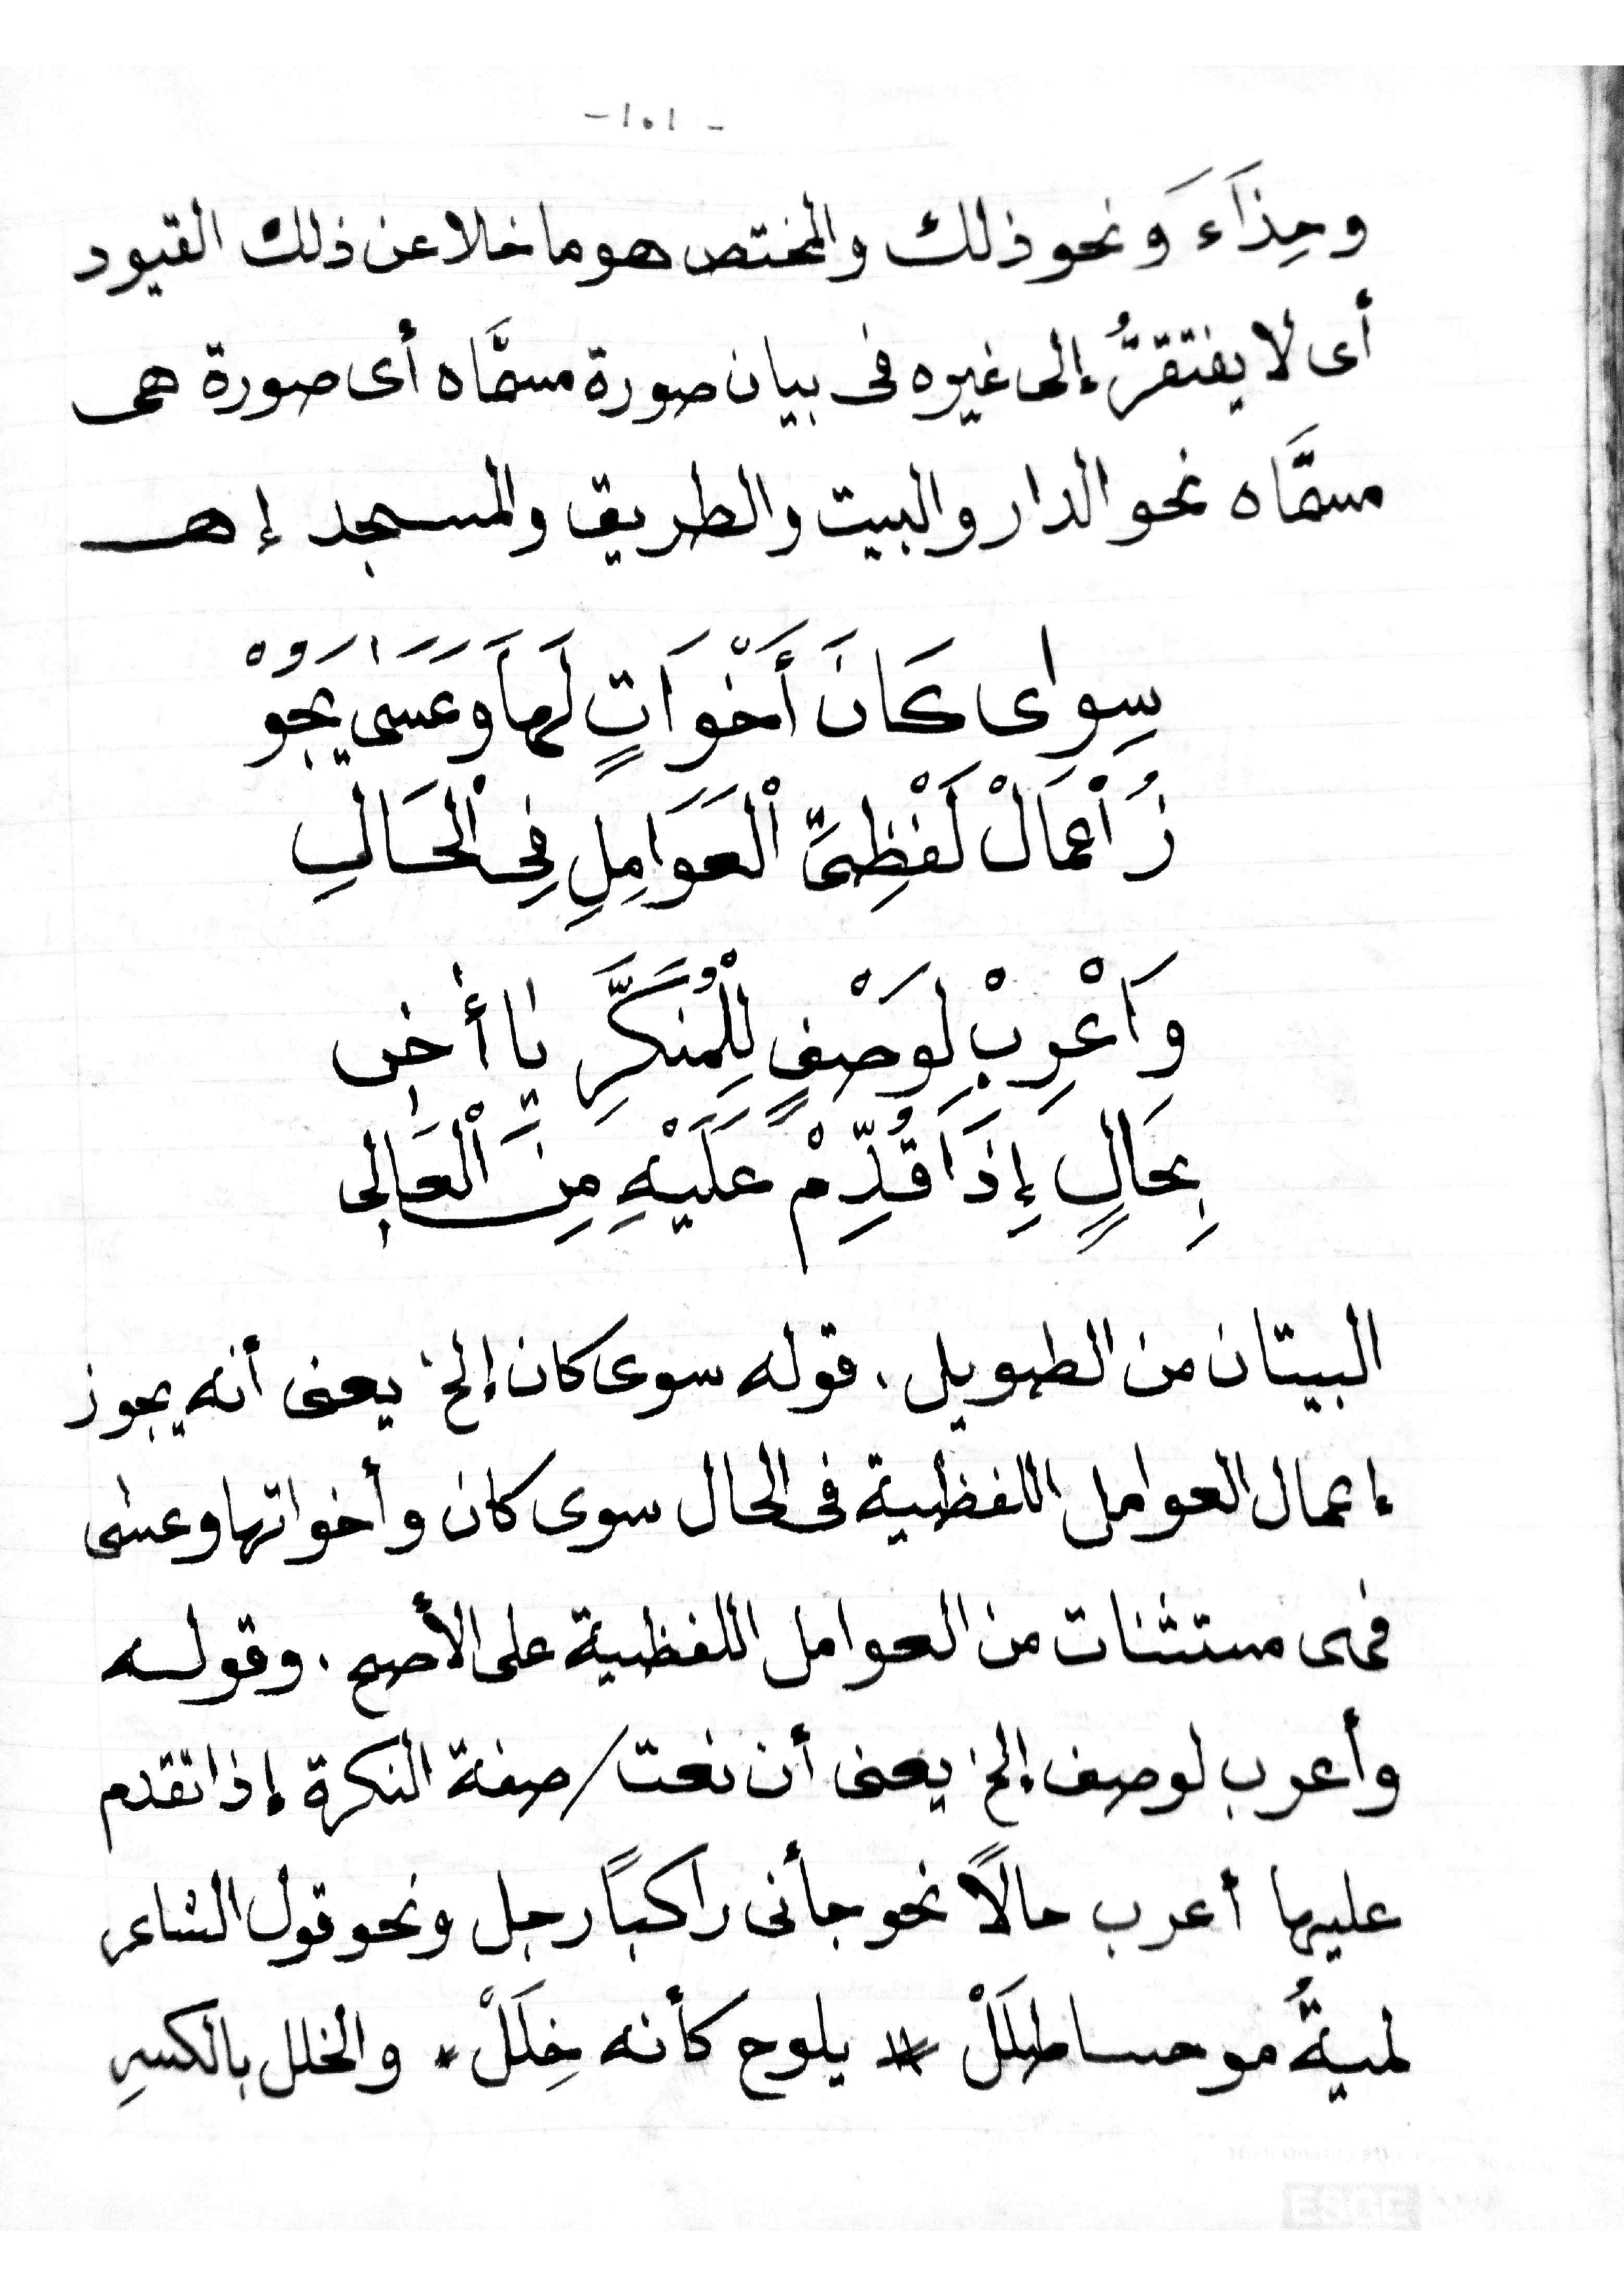 - ١٠١ -
وحِذَآءَ وَنحو ذلك والمختص هو ما خلا عن ذلك القيود
أى لا يفتقرُّ إلى غيره فى بيان صورة مسمَّاه أى صورة هى
مسمَّاه نحو الدار والبيت والطريق والمسجد إهـ
سِوٰى كَانَ أَخْوَاتٍ لَهاَ وَعَسَىٰ يَجُوْ
زُ اْعمَالْ لَفْظِىِّ اْلعَوَامِلِ فِى اْلحَالِ
وَاَعْرِبْ لِوَصْفٍ لِلْمُنَكَّرِ يٰا أُخٰى
بِحَالٍ إِذَا قُدِّمْ عَلَيْهِ مِنَ اْلعَالِى
البيتان من الطويل. قوله سوى كان إلخ يعنى أنه يجوز
إعمال العوامل اللفظية فى الحال سوى كان وأخواتها وعسٰى
فهى مستثنات من العوامل اللفظية على الأصح. وقوله
وأعرب لوصف إلخ يعنى أن نعت/صفة النكرة إذا تقدم
عليها أعرب حالًا نحو جأنى راكبًا رجل ونحو قول الشاعر
لميةُ موحسا طلَلْ * يلوح كأنه خِلَلْ * والخلل بالكسرِ